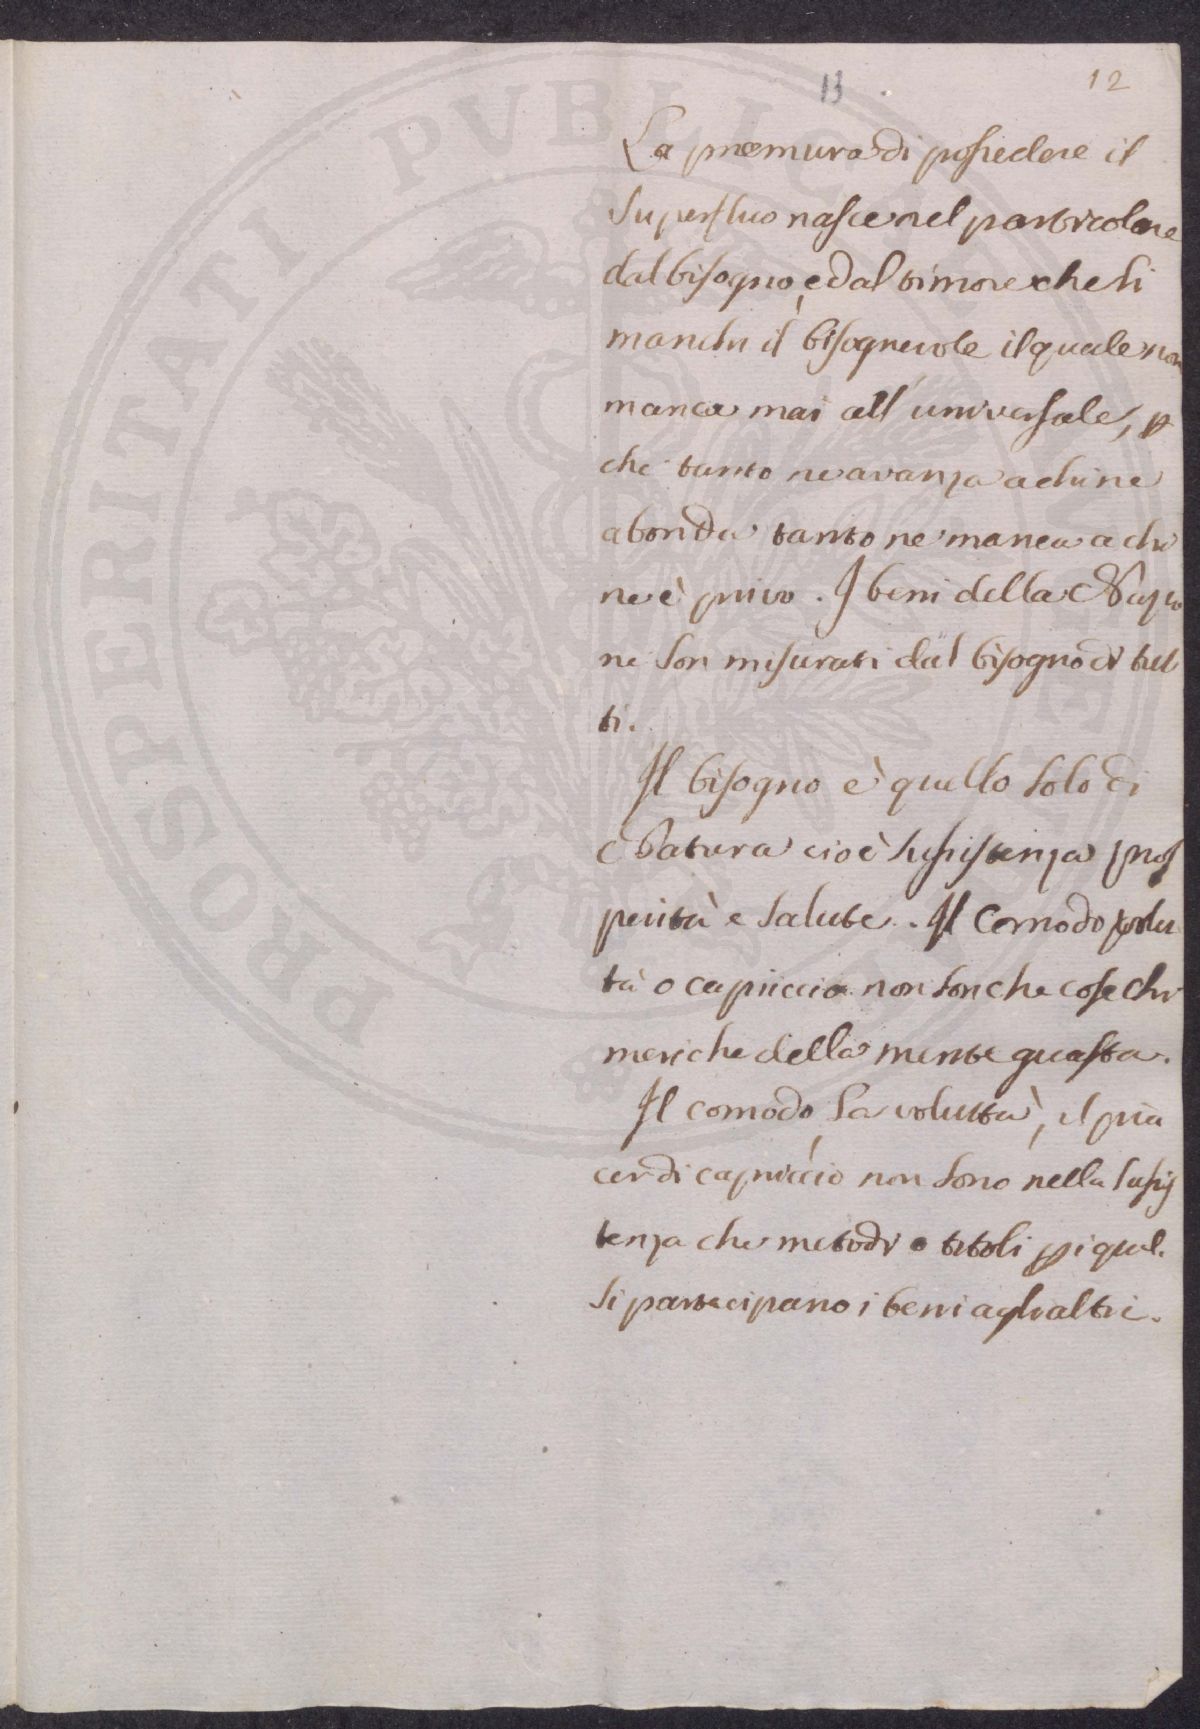 13
12
La premura di possedere il
superfluo nasce nel particolare
dal bisogno, e dal timore che li
manchi il bisognevole il quale non
manca mai all'universale, p
che tanto ne avanza a chi ne
abonda tanto ne manca a chi
ne è privo. I beni della Nazio
ne son misurati dal bisogno di tut
ti.
Il bisogno è quello solo di
Natura cioè sussistenza pros
perità e salute. Il Comodo volu
tà o capriccio non son che cose chi
meriche della mente guasta.
Il comodo, la voluttà, il pia
cer di capriccio non sono nella susis
tenza che metodi o titoli p i qual.
si partecipano i beni agli altri.
PROSPERITATI PVBLICAE